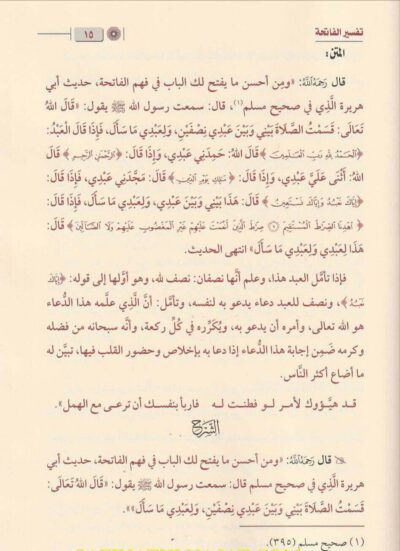 تفسير الفاتحة
١٥
المتن:
قال رَحِمَهُ اللَّهُ: «ومن أحسن ما يفتح لك الباب في فهم الفاتحة، حديث أبي
هريرة الَّذي في صحيح مسلم(١)، قال: سمعت رسول الله ﷺ يقول: «قَالَ اللهُ
تَعَالَى: قَسَمْتُ الصَّلَاةَ بَيْنِي وَبَيْنَ عَبْدِي نِصْفَيْنِ، وَلِعَبْدِي مَا سَأَلَ، فَإِذَا قَالَ الْعَبْدُ:
﴿الْحَمْدُ لِلَّهِ رَبِّ الْعَالَمِينَ﴾ قَالَ اللهُ: حَمِدَنِي عَبْدِي، وَإِذَا قَالَ: ﴿الرَّحْمَنِ الرَّحِيمِ﴾ قَالَ
اللهُ: أَثْنَى عَلَيَّ عَبْدِي، وَإِذَا قَالَ: ﴿مَالِكِ يَوْمِ الدِّينِ﴾ قَالَ: مَجَّدَنِي عَبْدِي، فَإِذَا قَالَ:
﴿إِيَّاكَ نَعْبُدُ وَإِيَّاكَ نَسْتَعِينُ﴾ قَالَ: هَذَا بَيْنِي وَبَيْنَ عَبْدِي، وَلِعَبْدِي مَا سَأَلَ، فَإِذَا قَالَ:
﴿اهْدِنَا الصِّرَاطَ الْمُسْتَقِيمَ ۝ صِرَاطَ الَّذِينَ أَنْعَمْتَ عَلَيْهِمْ غَيْرِ الْمَغْضُوبِ عَلَيْهِمْ وَلَا الضَّالِّينَ﴾ قَالَ:
هَذَا لِعَبْدِي وَلِعَبْدِي مَا سَأَلَ» انتهى الحديث.
فإذا تأمَّل العبد هذا، وعلم أنَّها نصفان: نصف لله، وهو أوَّلها إلى قوله: ﴿إِيَّاكَ
نَعْبُدُ﴾، ونصف للعبد دعاء يدعو به لنفسه، وتأمَّل: أنَّ الَّذي علَّمه هذا الدُّعاء
هو الله تعالى، وأمره أن يدعو به، ويُكَرِّره في كُلِّ ركعة، وأنَّه سبحانه من فضله
وكرمه ضَمِن إجابة هذا الدُّعاء إذا دعا به بإخلاص وحضور القلب فيها، تبيَّن له
ما أضاع أكثر النَّاس.
قد هيَّؤوك لأمر لو فطنت له فاربأ بنفسك أن ترعى مع الهمل».
الشَّرْحُ
قال رَحِمَهُ اللَّهُ: «ومن أحسن ما يفتح لك الباب في فهم الفاتحة، حديث أبي
هريرة الَّذي في صحيح مسلم قال: سمعت رسول الله ﷺ يقول: «قَالَ اللهُ تَعَالَى:
قَسَمْتُ الصَّلَاةَ بَيْنِي وَبَيْنَ عَبْدِي نِصْفَيْنِ، وَلِعَبْدِي مَا سَأَلَ»».
(١) صحيح مسلم (٣٩٥).